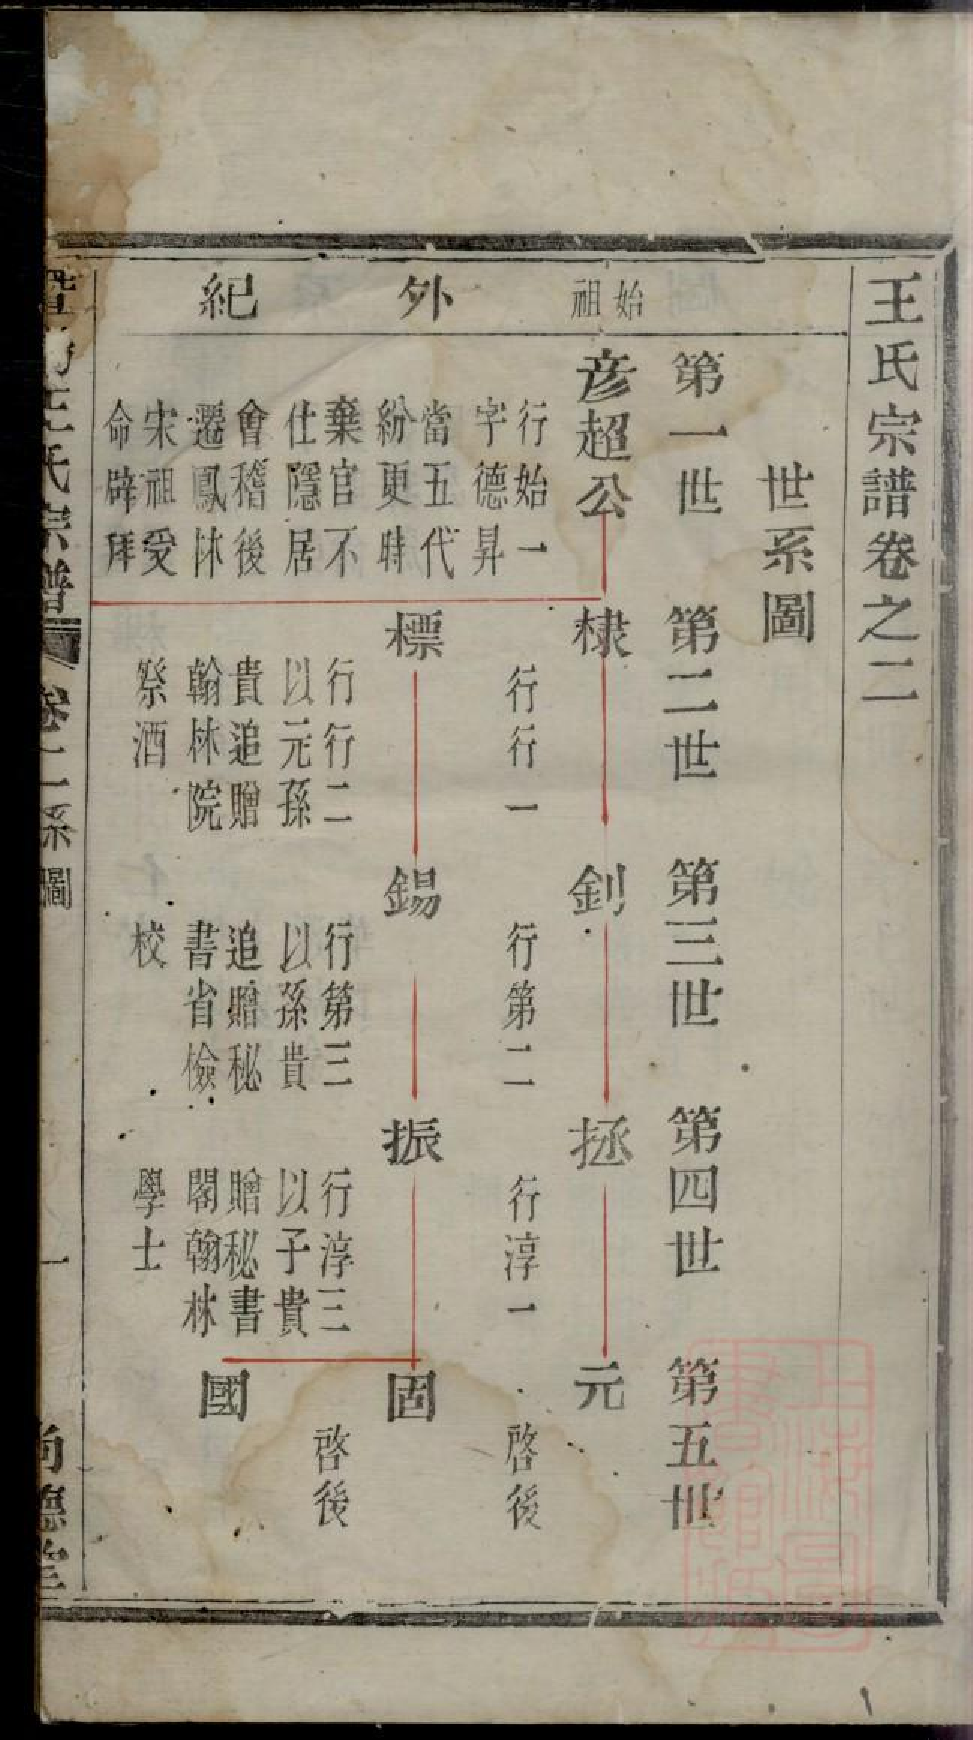 王氏宗譜卷之二
世系圖
第一世
第二世
第三世
第四世
第五世
始祖
外紀
彦超公
行始一
字德昇
當五代
紛更時
棄官不
仕隱居
會稽後
遷鳳林
宋祖受
命辟拜
棣
行行一
釗
行第二
拯
行淳一
元
啓後
標
行行二
以元孫
貴追贈
翰林院
祭酒
錫
行第三
以孫貴
追贈秘
書省檢
校
振
行淳三
以子貴
贈秘書
閣翰林
學士
固
啓後
國
王氏宗譜
卷二系圖
一
尚德堂